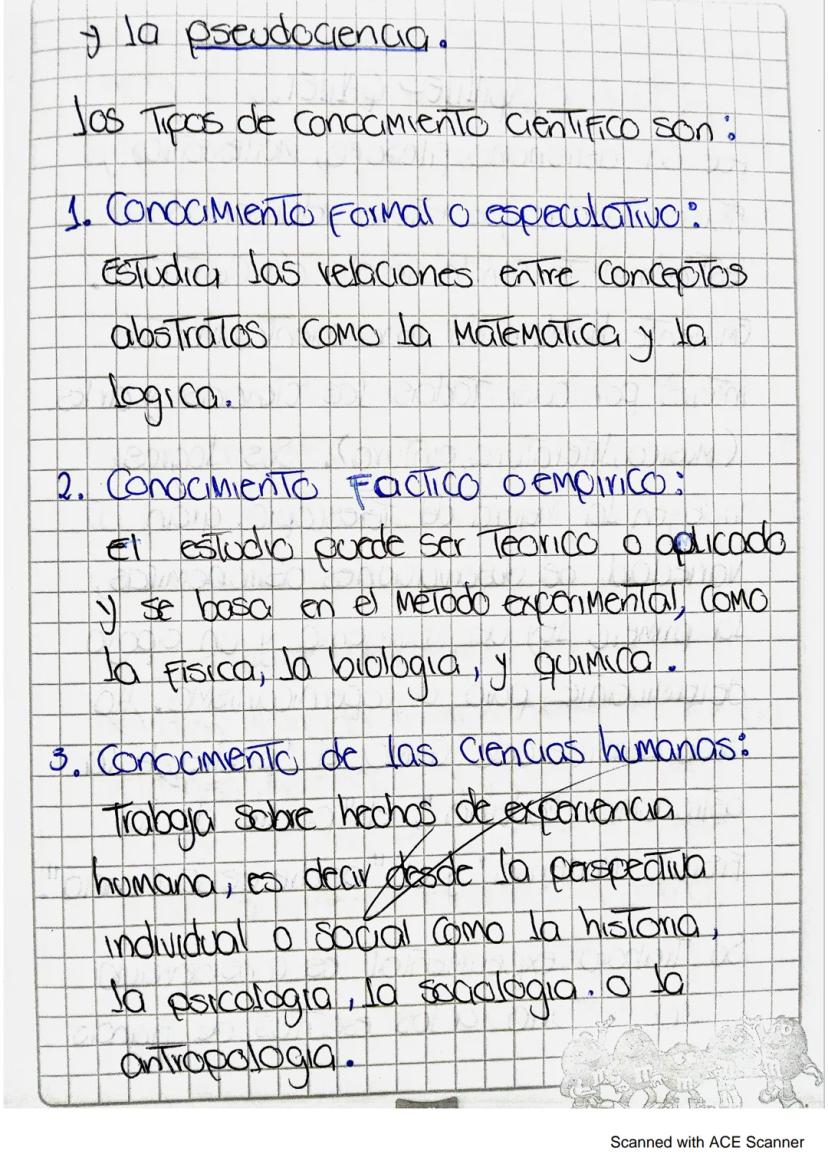 y la pseudociencia.
los Tipos de conocimiento científico son:
1. Conocimiento Formal o especulativo:
Estudia las relaciones entre conceptos
abstratos como la Matematica y la
logica.
2. Conocimiento Factico o empirico:
El estudio puede ser Teorico o aplicado
y se basa en el Metodo experimental, como
la Fisica, la biologia, y quimica.
3. Conocimento de las ciencias humanas:
Trabaja sobre hechos de experiencia
humana, es decir desde la perspectiva
individual o social como la historia,
la psicologia, la sociologia. o la
antropologia.
Scanned with ACE Scanner